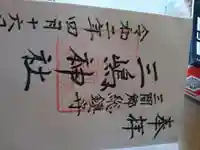 奉拝
総鎮守
三嶋神社
令和二年四月十六日